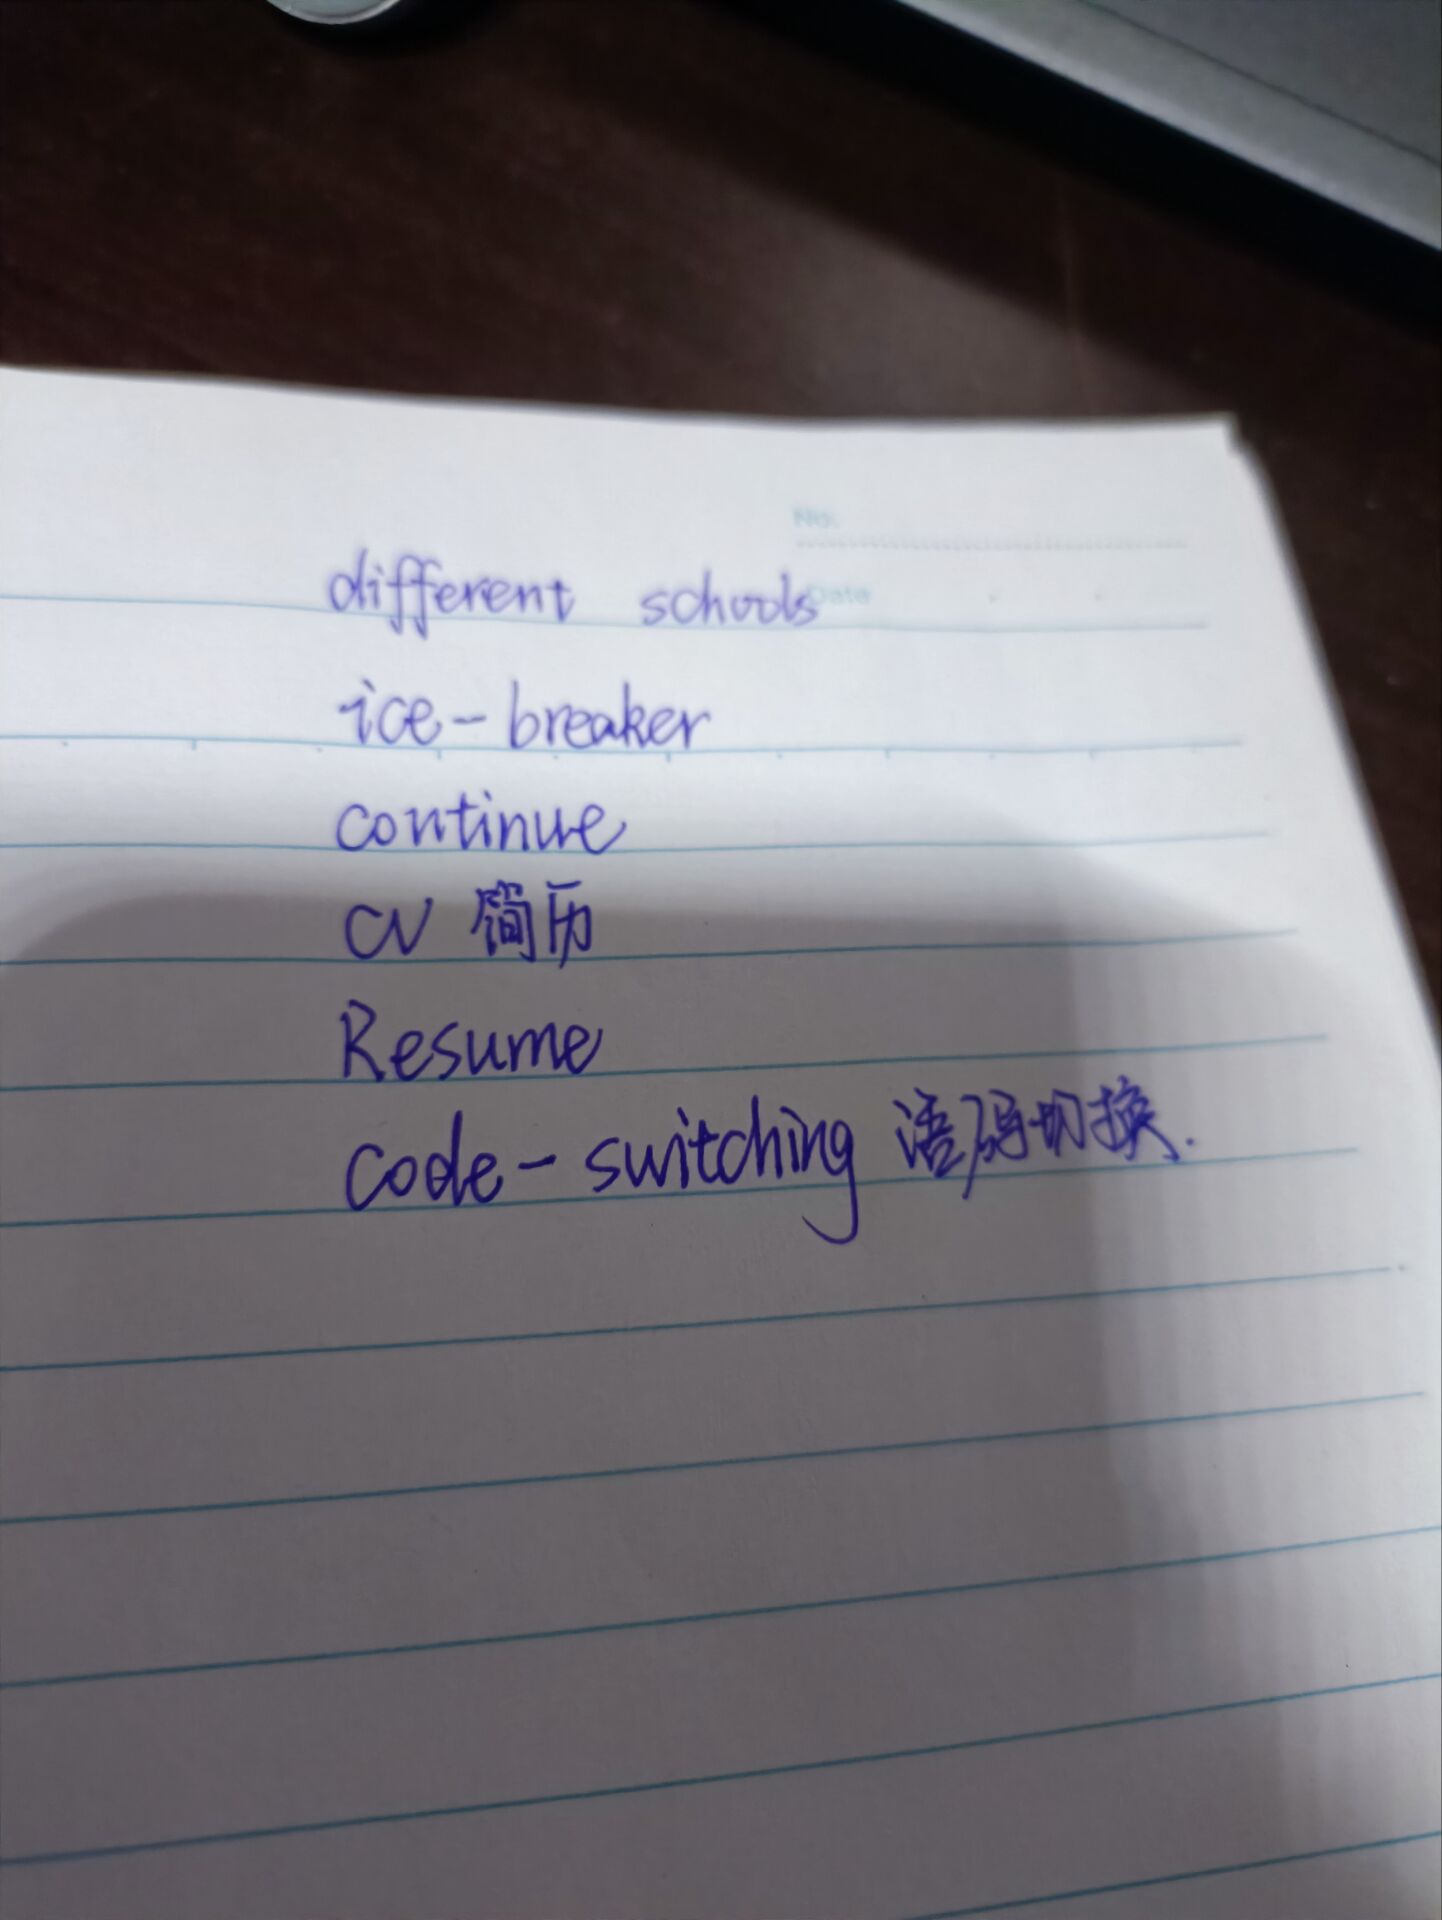 No.
Date
different schools
ice-breaker
continue
CV 简历
Resume
code-switching 语码切换.